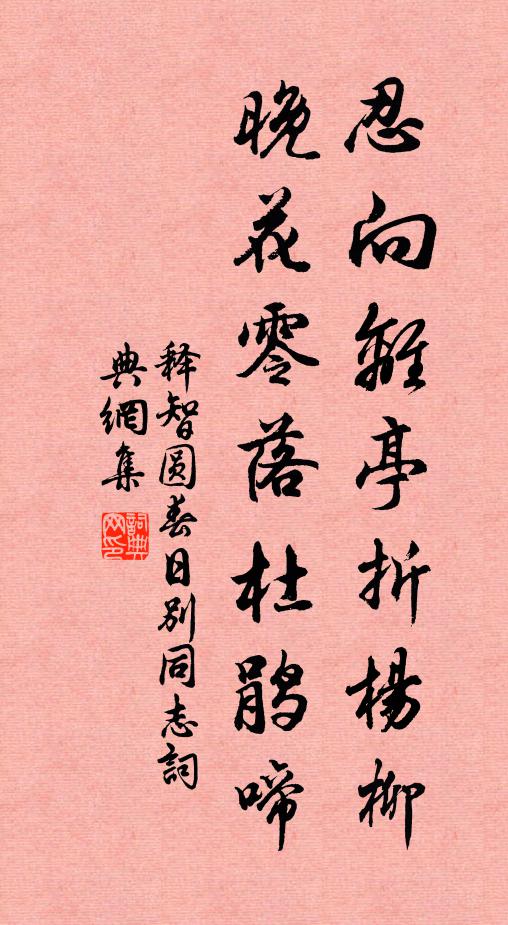 忍向離亭折楊柳
晚花零落杜鵑啼
释智圆春日别同志詞
典網集
詞典
网印